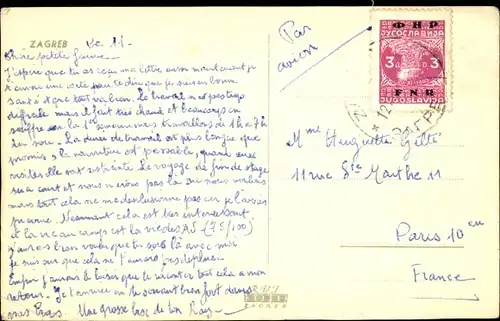 ZAGREB
Le 11
Chère petite femme
J'espère que tu as reçu ma lettre avion
t'envoie une carte pour te dire que je suis en bonne
santé et que tout va bien. Le travail n'est pas trop
difficile mais il fait très chaud et beaucoup en
souffre travaillons de 1 h à 7 h
du soir. La durée de travail est plus longue que
promis, la nourriture est passable, quand aux
visites elle ont restreinte. Le voyage de fin de stage
sera court et nous n'irons pas là où nous voulais
mais tout cela ne me
cela est très intéressant
et la vie au camp est la vie des AJ (75/100)
j'aurais bien voulu que tu sois là avec moi
je suis sur que cela ne t'aurait pas déplu
Enfin j'aurai le loisir que te raconter tout cela a mon
retour. Je t'embrasse en te serrant bien fort dans
mes bras. Une grosse bise de ton
Par
avion
Ф Н Р
ЈУГОСЛАВИЈА
3 Д. D. 3
F N R
JUGOSLAVIJA
Mme Huguette Gilti
11 rue Ste Marthe 11
Paris 10 em
France
ZAGREB